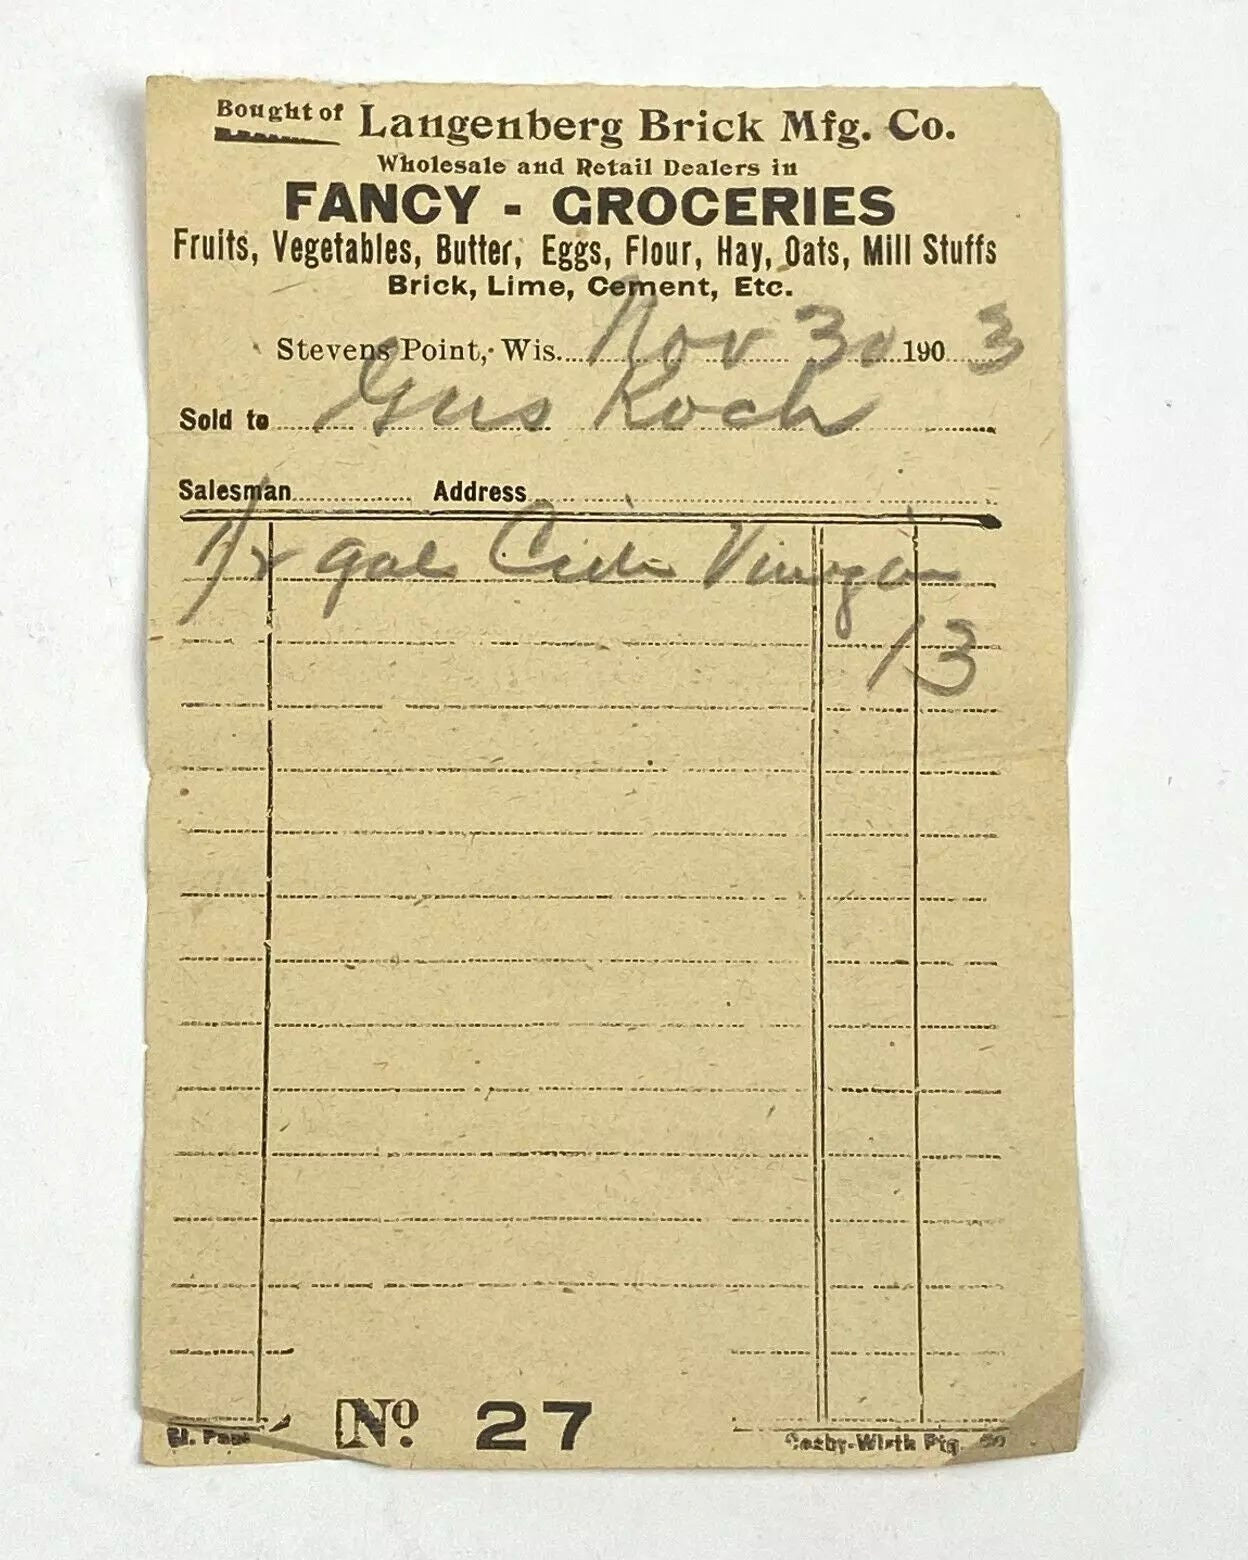 Bought of Langenberg Brick Mfg. Co.
Wholesale and Retail Dealers in
FANCY - GROCERIES
Fruits, Vegetables, Butter, Eggs, Flour, Hay, Oats, Mill Stuffs
Brick, Lime, Cement, Etc.
Stevens Point, Wis. Nov 30 1903
Sold to Gus Koch
Salesman Address
1/2 gal Cider Vinegar
13
No. 27